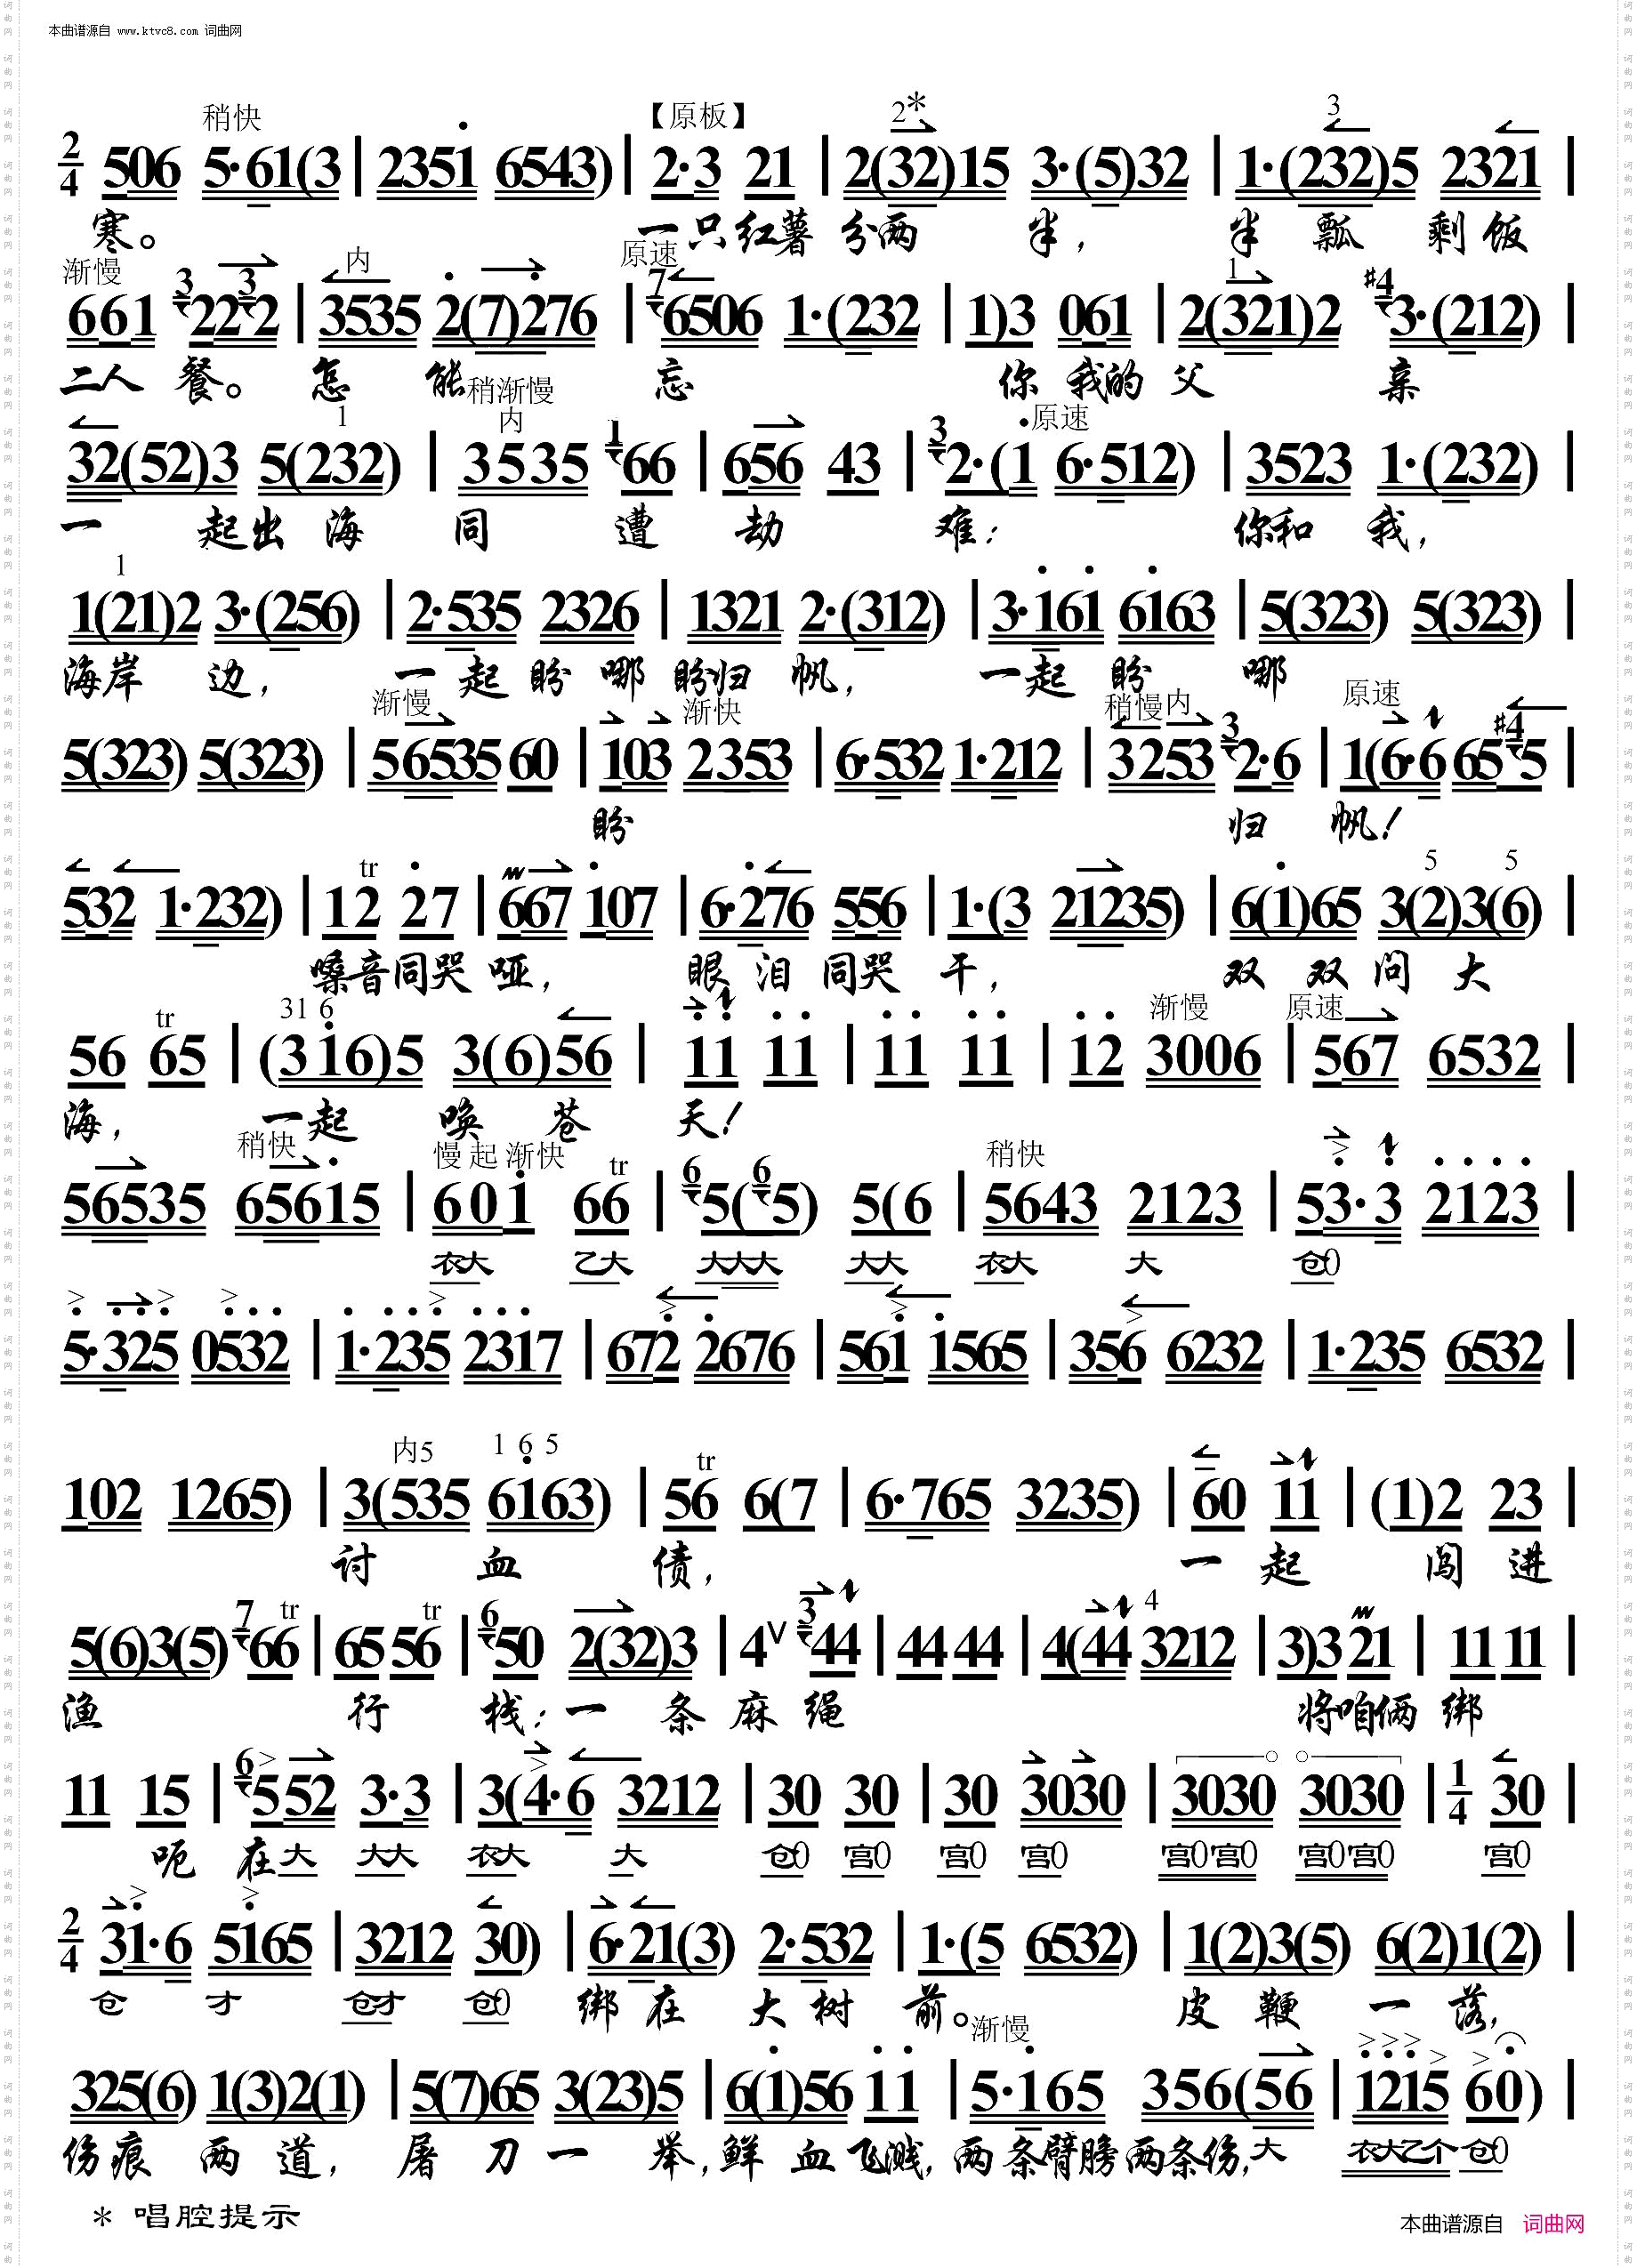 本曲谱源自 www.ktvc8.com 词曲网
稍快 【原板】 2* 3
2/4 506 5·61(3 | 2351 6543) | 2·3 21 | 2(32)15 3·(5)32 | 1·(232)5 2321 |
寒。 一只红薯分两 半, 半 瓢 剩 饭
渐慢 3 3 内 原速 7 1 #4
661 222 | 3535 2(7)276 | 6506 1·(232 | 1)3 061 | 2(321)2 3·(212) |
二人 餐。 怎 能 忘 你 我的 父 亲
稍渐慢
1 内 1 3 原速
32(52)3 5(232) | 3535 66 | 656 43 | 2·(1 6·512) | 3523 1·(232) |
一 起出 海 同 遭 劫 难; 你和 我,
1
1(21)2 3·(256) | 2·535 2326 | 1321 2·(312) | 3·161 6163 | 5(323) 5(323) |
海岸 边, 一 起 盼 哪 盼归 帆, 一起 盼 哪
渐慢 渐快 稍慢内 3 原速 #4
5(323) 5(323) | 56535 60 | 103 2353 | 6·532 1·212 | 3253 2·6 | 1(6·6 655 |
盼 归 帆!
tr 5 5
532 1·232) | 12 27 | 667 107 | 6·276 556 | 1·(3 21235) | 6(1)65 3(2)3(6) |
嗓音同哭 哑, 眼 泪 同哭 干, 双 双 问 大
tr 31 6 渐慢 原速
56 65 | (316)5 3(6)56 | 11 11 | 11 11 | 12 3006 | 567 6532 |
海, 一起 唤 苍 天!
稍快 慢起渐快 tr 6 6 稍快
56535 65615 | 601 66 | 5(5) 5(6 | 5643 2123 | 53·3 2123 |
衣大 乙大 大大大 大大 衣大 大 仓0
5·325 0532 | 1·235 2317 | 672 2676 | 561 1565 | 356 6232 | 1·235 6532 |
内5 1 6 5 tr
102 1265) | 3(535 6163) | 56 6(7 | 6·765 3235) | 60 11 | (1)2 23 |
讨 血 债, 一 起 闯 进
7 tr tr 6 3 4
5(6)3(5) 66 | 65 56 | 50 2(32)3 | 4∨ 44 | 44 44 | 4(44 3212 | 3)3 21 | 11 11 |
渔 行 栈; 一 条 麻 绳 将咱俩 绑
6
11 15 | 552 3·3 | 3(4·6 3212 | 30 30 | 30 3030 | 3030 3030 | 1/4 30 |
呃 在大 大大 衣大 大 仓0 宫0 宫0 宫0 宫0宫0 宫0宫0 宫0
2/4 31·6 5165 | 3212 30) | 6·21(3) 2·532 | 1·(5 6532) | 1(2)3(5) 6(2)1(2) |
仓 才 仓才 仓0 绑 在 大 树 前。 皮 鞭 一 落,
渐慢
325(6) 1(3)2(1) | 5(7)65 3(23)5 | 6(1)56 11 | 5·165 356(56 | 1215 60) |
伤痕 两 道, 屠 刀 一 举, 鲜 血 飞溅, 两条臂膀两条伤, 大 衣大乙个 仓0
* 唱腔提示
本曲谱源自 词曲网